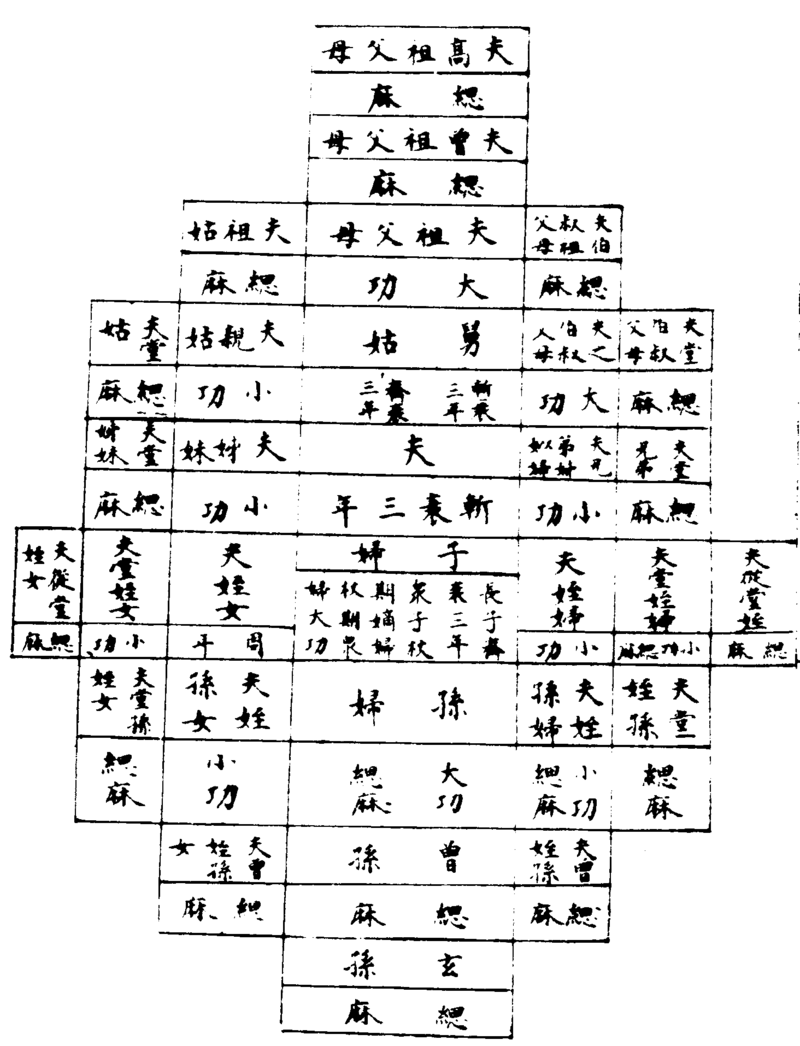 夫高祖父母
緦麻
夫曾祖父母
緦麻
夫伯叔祖父母
夫祖父母
夫祖姑
緦麻
大功
緦麻
夫堂伯叔父母
夫之伯叔父母
舅姑
夫親姑
夫堂姑
緦麻
大功
斬衰三年
齊衰三年
小功
緦麻
夫堂兄弟
夫兄弟姒婦
夫
夫姊妹
夫堂姊妹
緦麻
小功
斬衰三年
小功
緦麻
夫從堂姪
夫堂姪婦
夫姪婦
子婦
夫姪女
夫堂姪女
夫從堂姪女
長子齊
衰三年
衆子杖
期嫡婦
杖期衆
婦大功
緦麻
小功緦麻
小功
周年
小功
緦麻
夫堂姪孫
夫姪孫婦
孫婦
夫姪孫女
夫堂孫姪女
緦麻
小功緦麻
大功緦麻
小功
緦麻
夫曾姪孫
曾孫
夫曾姪孫女
緦麻
緦麻
緦麻
玄孫
緦麻